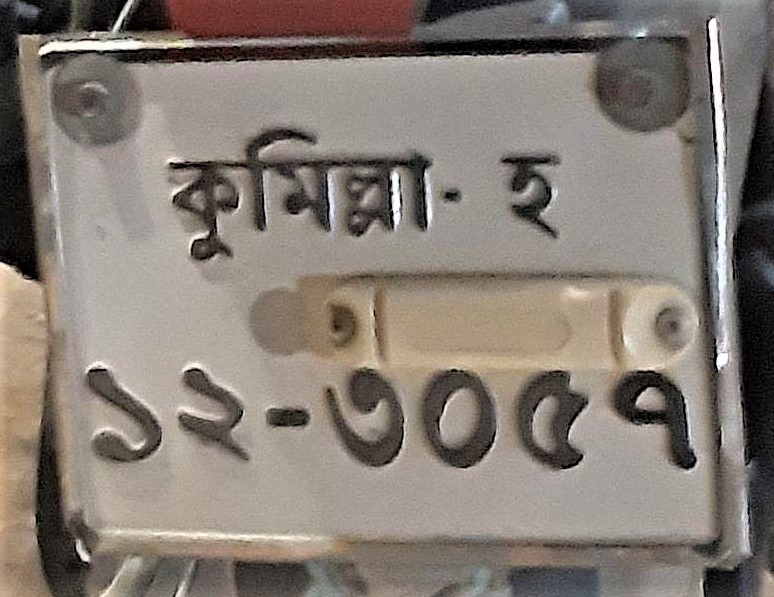 কুমিল্লা- হ
১২-৩০৫৭